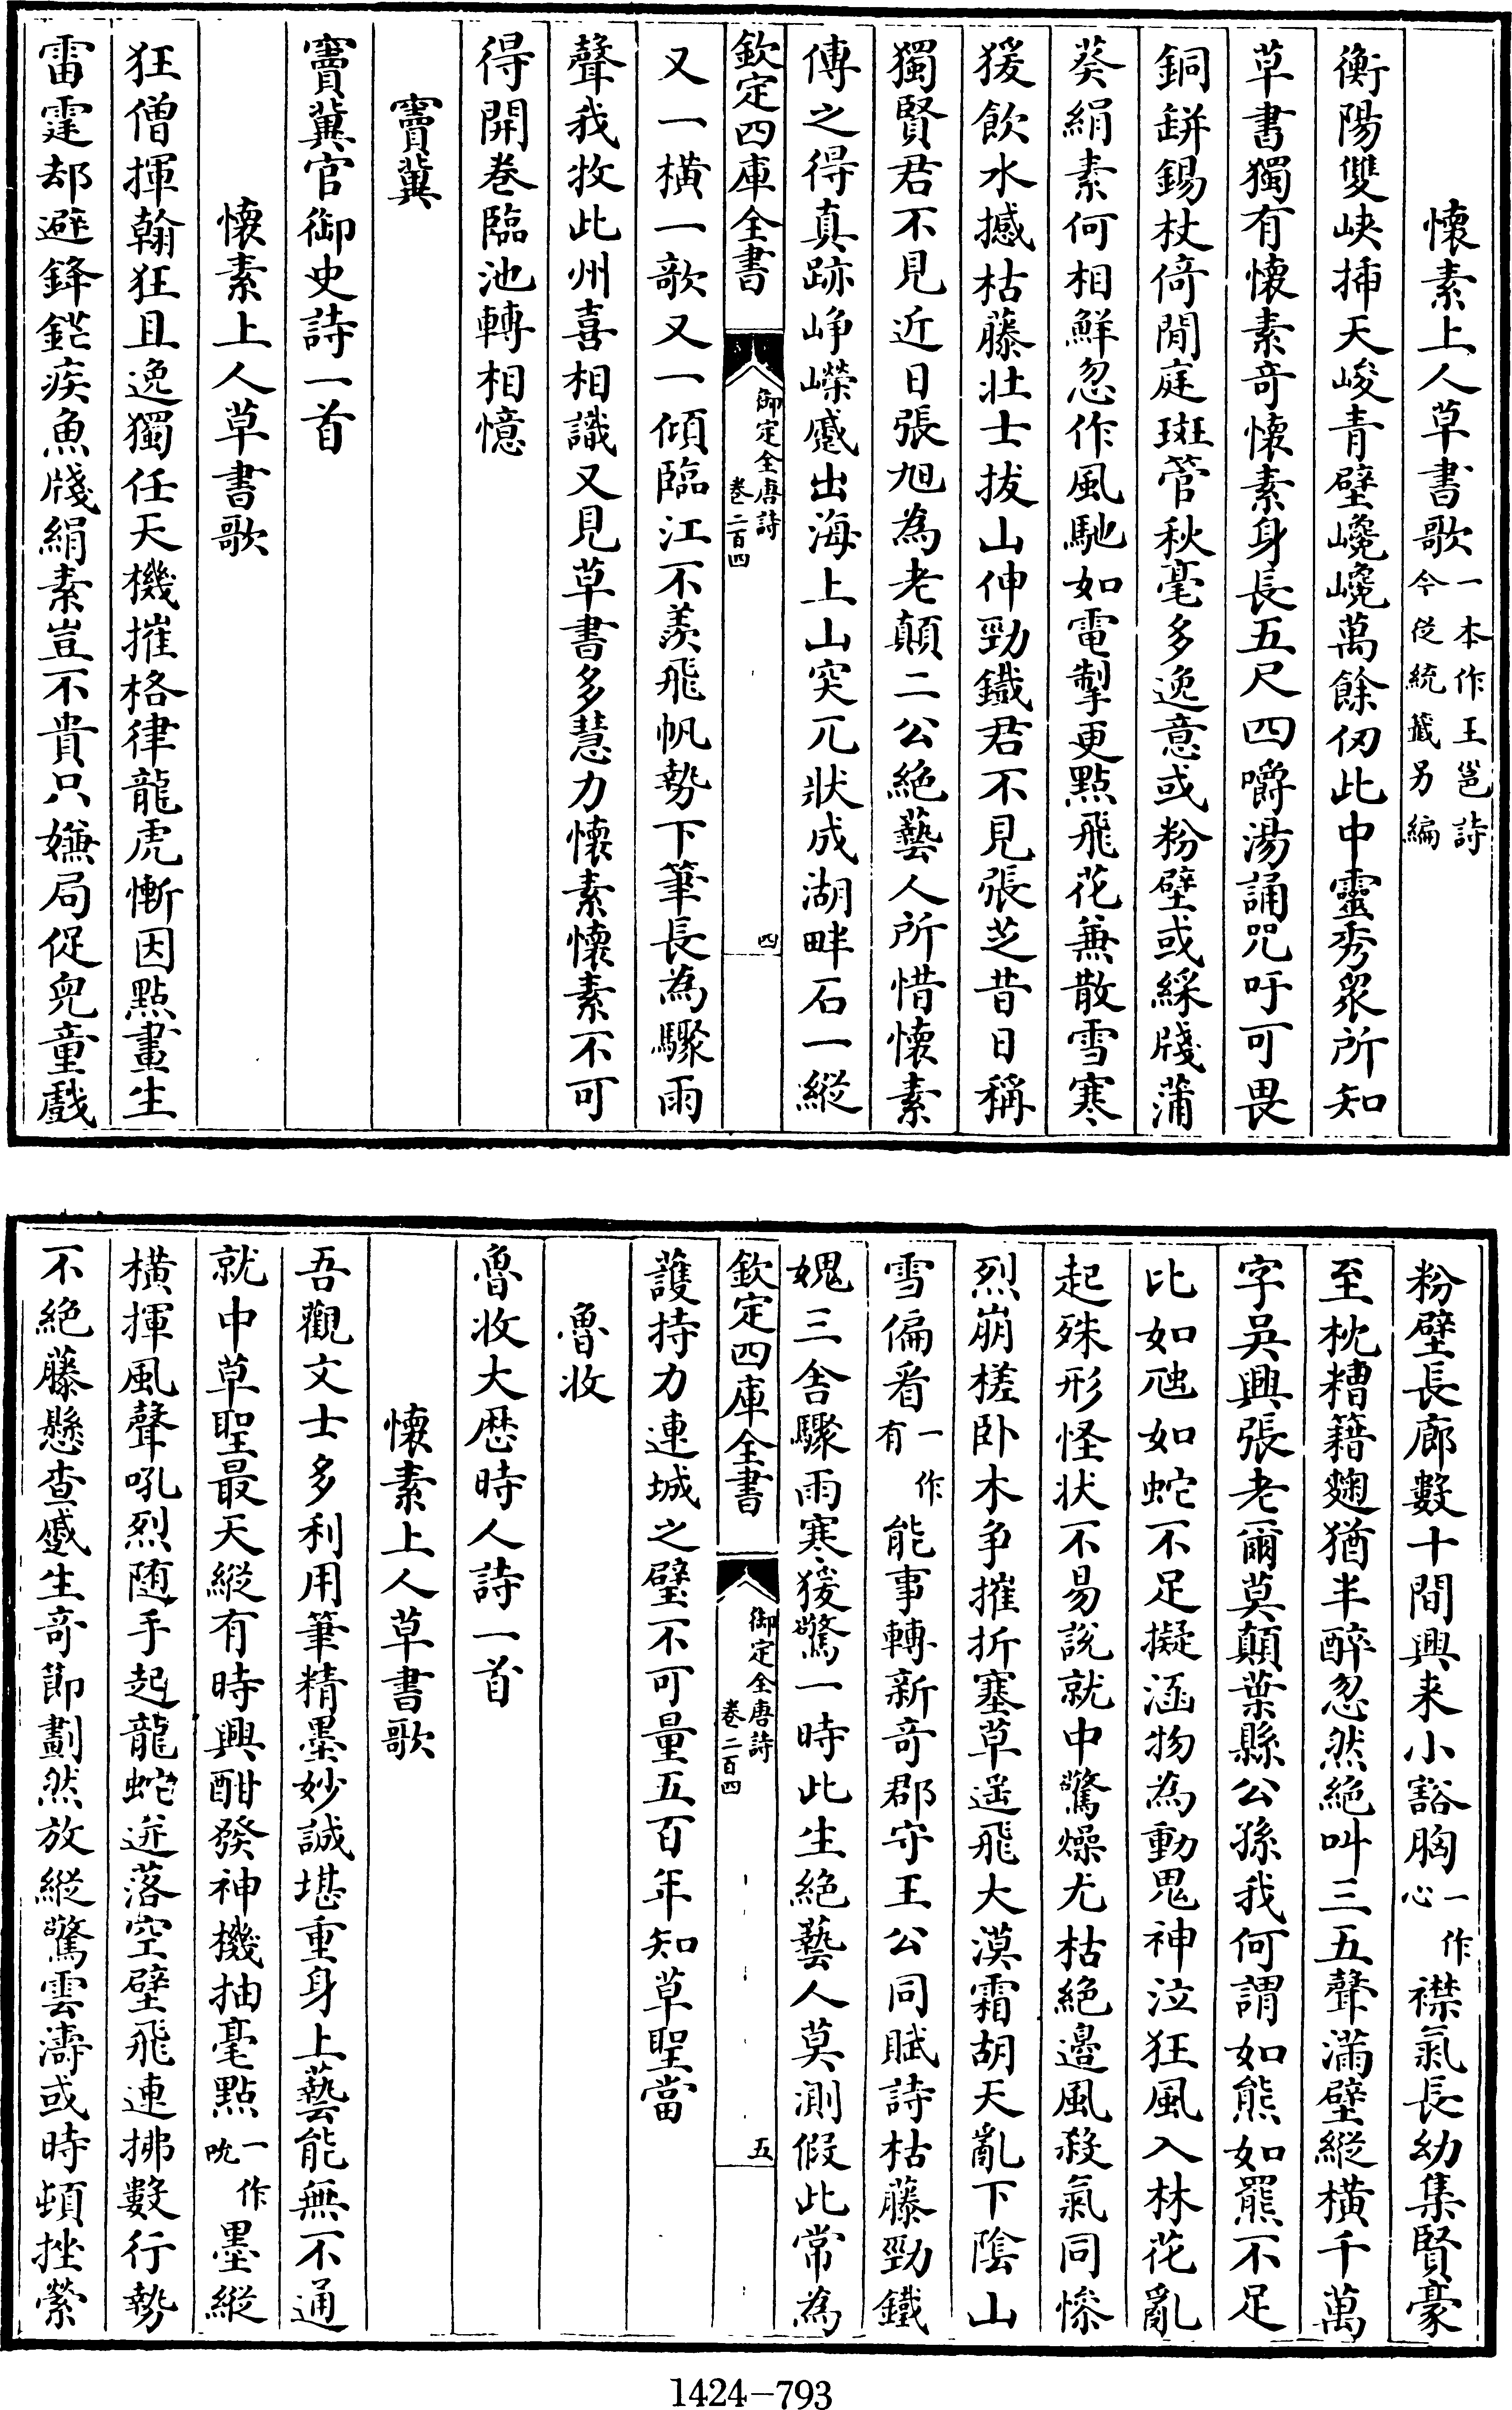 懷素上人草書歌一本作王邕詩今從統籖另編
衡陽雙峽揷天峻青壁巉巉萬餘仞此中靈秀衆所知
草書獨有懷素奇懷素身長五尺四嚼湯誦咒吁可畏
銅缾錫杖倚閒庭斑管秋毫多逸意或粉壁或綵牋蒲
葵絹素何相鮮忽作風馳如電掣更點飛花兼散雪寒
猨飲水撼枯藤壯士拔山伸勁鐵君不見張芝昔日稱
獨賢君不見近日張旭為老顛二公絶藝人所惜懷素
傳之得真跡崢嶸蹙出海上山突兀狀成湖畔石一縱
欽定四庫全書
御定全唐詩
卷二百四
四
又一橫一欹又一傾臨江不羨飛帆勢下筆長為驟雨
聲我牧此州喜相識又見草書多慧力懷素懷素不可
得開卷臨池轉相憶
竇冀
竇冀官御史詩一首
懷素上人草書歌
狂僧揮翰狂且逸獨任天機摧格律龍虎慚因點畫生
雷霆却避鋒鋩疾魚牋絹素豈不貴只嫌局促兒童戲
粉壁長廊數十間興来小豁胸一作心襟氣長幼集賢豪
至枕糟籍麴猶半醉忽然絶叫三五聲滿壁縱橫千萬
字吳興張老爾莫顛葉縣公孫我何謂如熊如羆不足
比如虺如蛇不足擬涵物為動鬼神泣狂風入林花亂
起殊形怪状不易說就中驚燥尤枯絶邉風殺氣同慘
烈崩槎卧木争摧折塞草遥飛大漠霜胡天亂下隂山
雪偏看一作有能事轉新奇郡守王公同賦詩枯藤勁鐵
媿三舍驟雨寒猨驚一時此生絶藝人莫測假此常為
欽定四庫全書
御定全唐詩
卷二百四
五
護持力連城之璧不可量五百年知草聖當
魯收
魯收大厯時人詩一首
懷素上人草書歌
吾觀文士多利用筆精墨妙誠堪重身上藝能無不通
就中草聖最天縱有時興酣發神機抽毫點一作吮墨縱
橫揮風聲吼烈随手起龍蛇迸落空壁飛連拂數行勢
不絶藤懸查蹙生奇節劃然放縱驚雲濤或時頓挫縈
1424-793